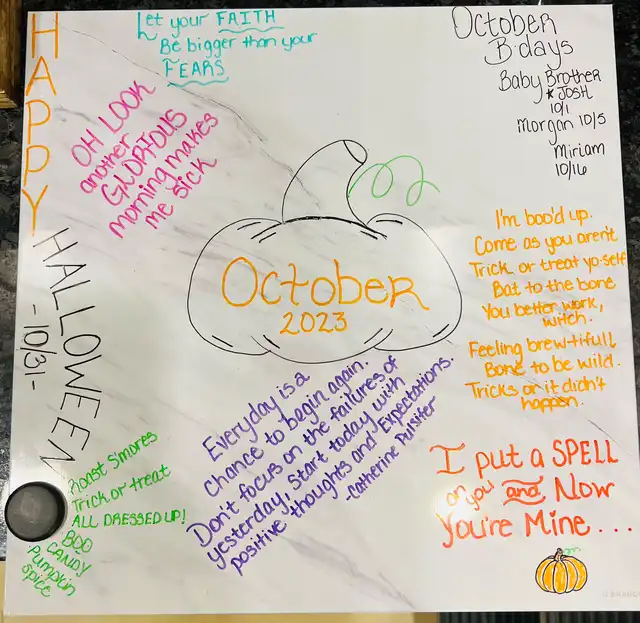 HAPPY
HALLOWEEN
-10/31-
Let your FAITH
Be bigger than your
FEARS
OH LOOK
another
GLORIOUS
morning makes
me sick
October
B-days
Baby Brother
*JOSH
10/1
Morgan 10/5
Miriam
10/16
October
2023
I'm boo'd up.
Come as you aren't
Trick or treat yo-self
Bat to the bone
You better work,
witch.
Feeling brew-tifull
Bone to be wild.
Tricks or it didn't
happen.
Everyday is a
chance to begin again.
Don't focus on the failures of
yesterday, start today with
positive thoughts and Expectations.
-Catherine Pulsifer
I put a SPELL
on you and Now
You're Mine...
Roast S'mores
Trick or treat
ALL DRESSED UP!
BOO
CANDY
Pumpkin
Spice